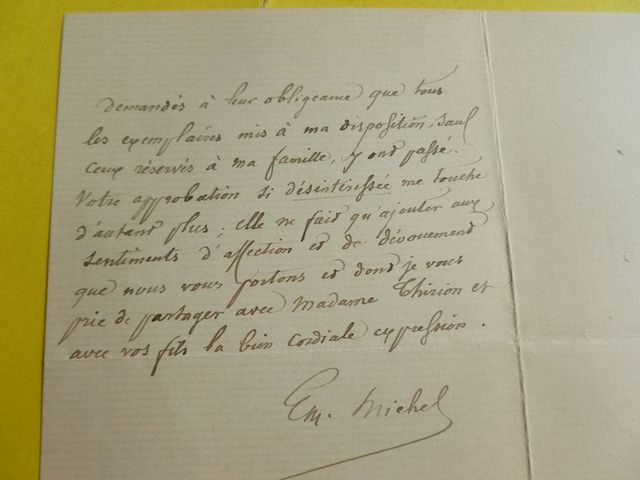 demandés à leur obligeance que tous
les exemplaires mis à ma disposition, sauf
ceux réservés à ma famille, y ont passé.
Votre approbation si désintéressée me touche
d'autant plus ; elle ne fait qu'ajouter aux
sentiments d'affection et de dévouement
que nous vous portons et dont je vous
prie de partager avec Madame Thirion et
avec vos fils la bien cordiale expression.
Em. Michel